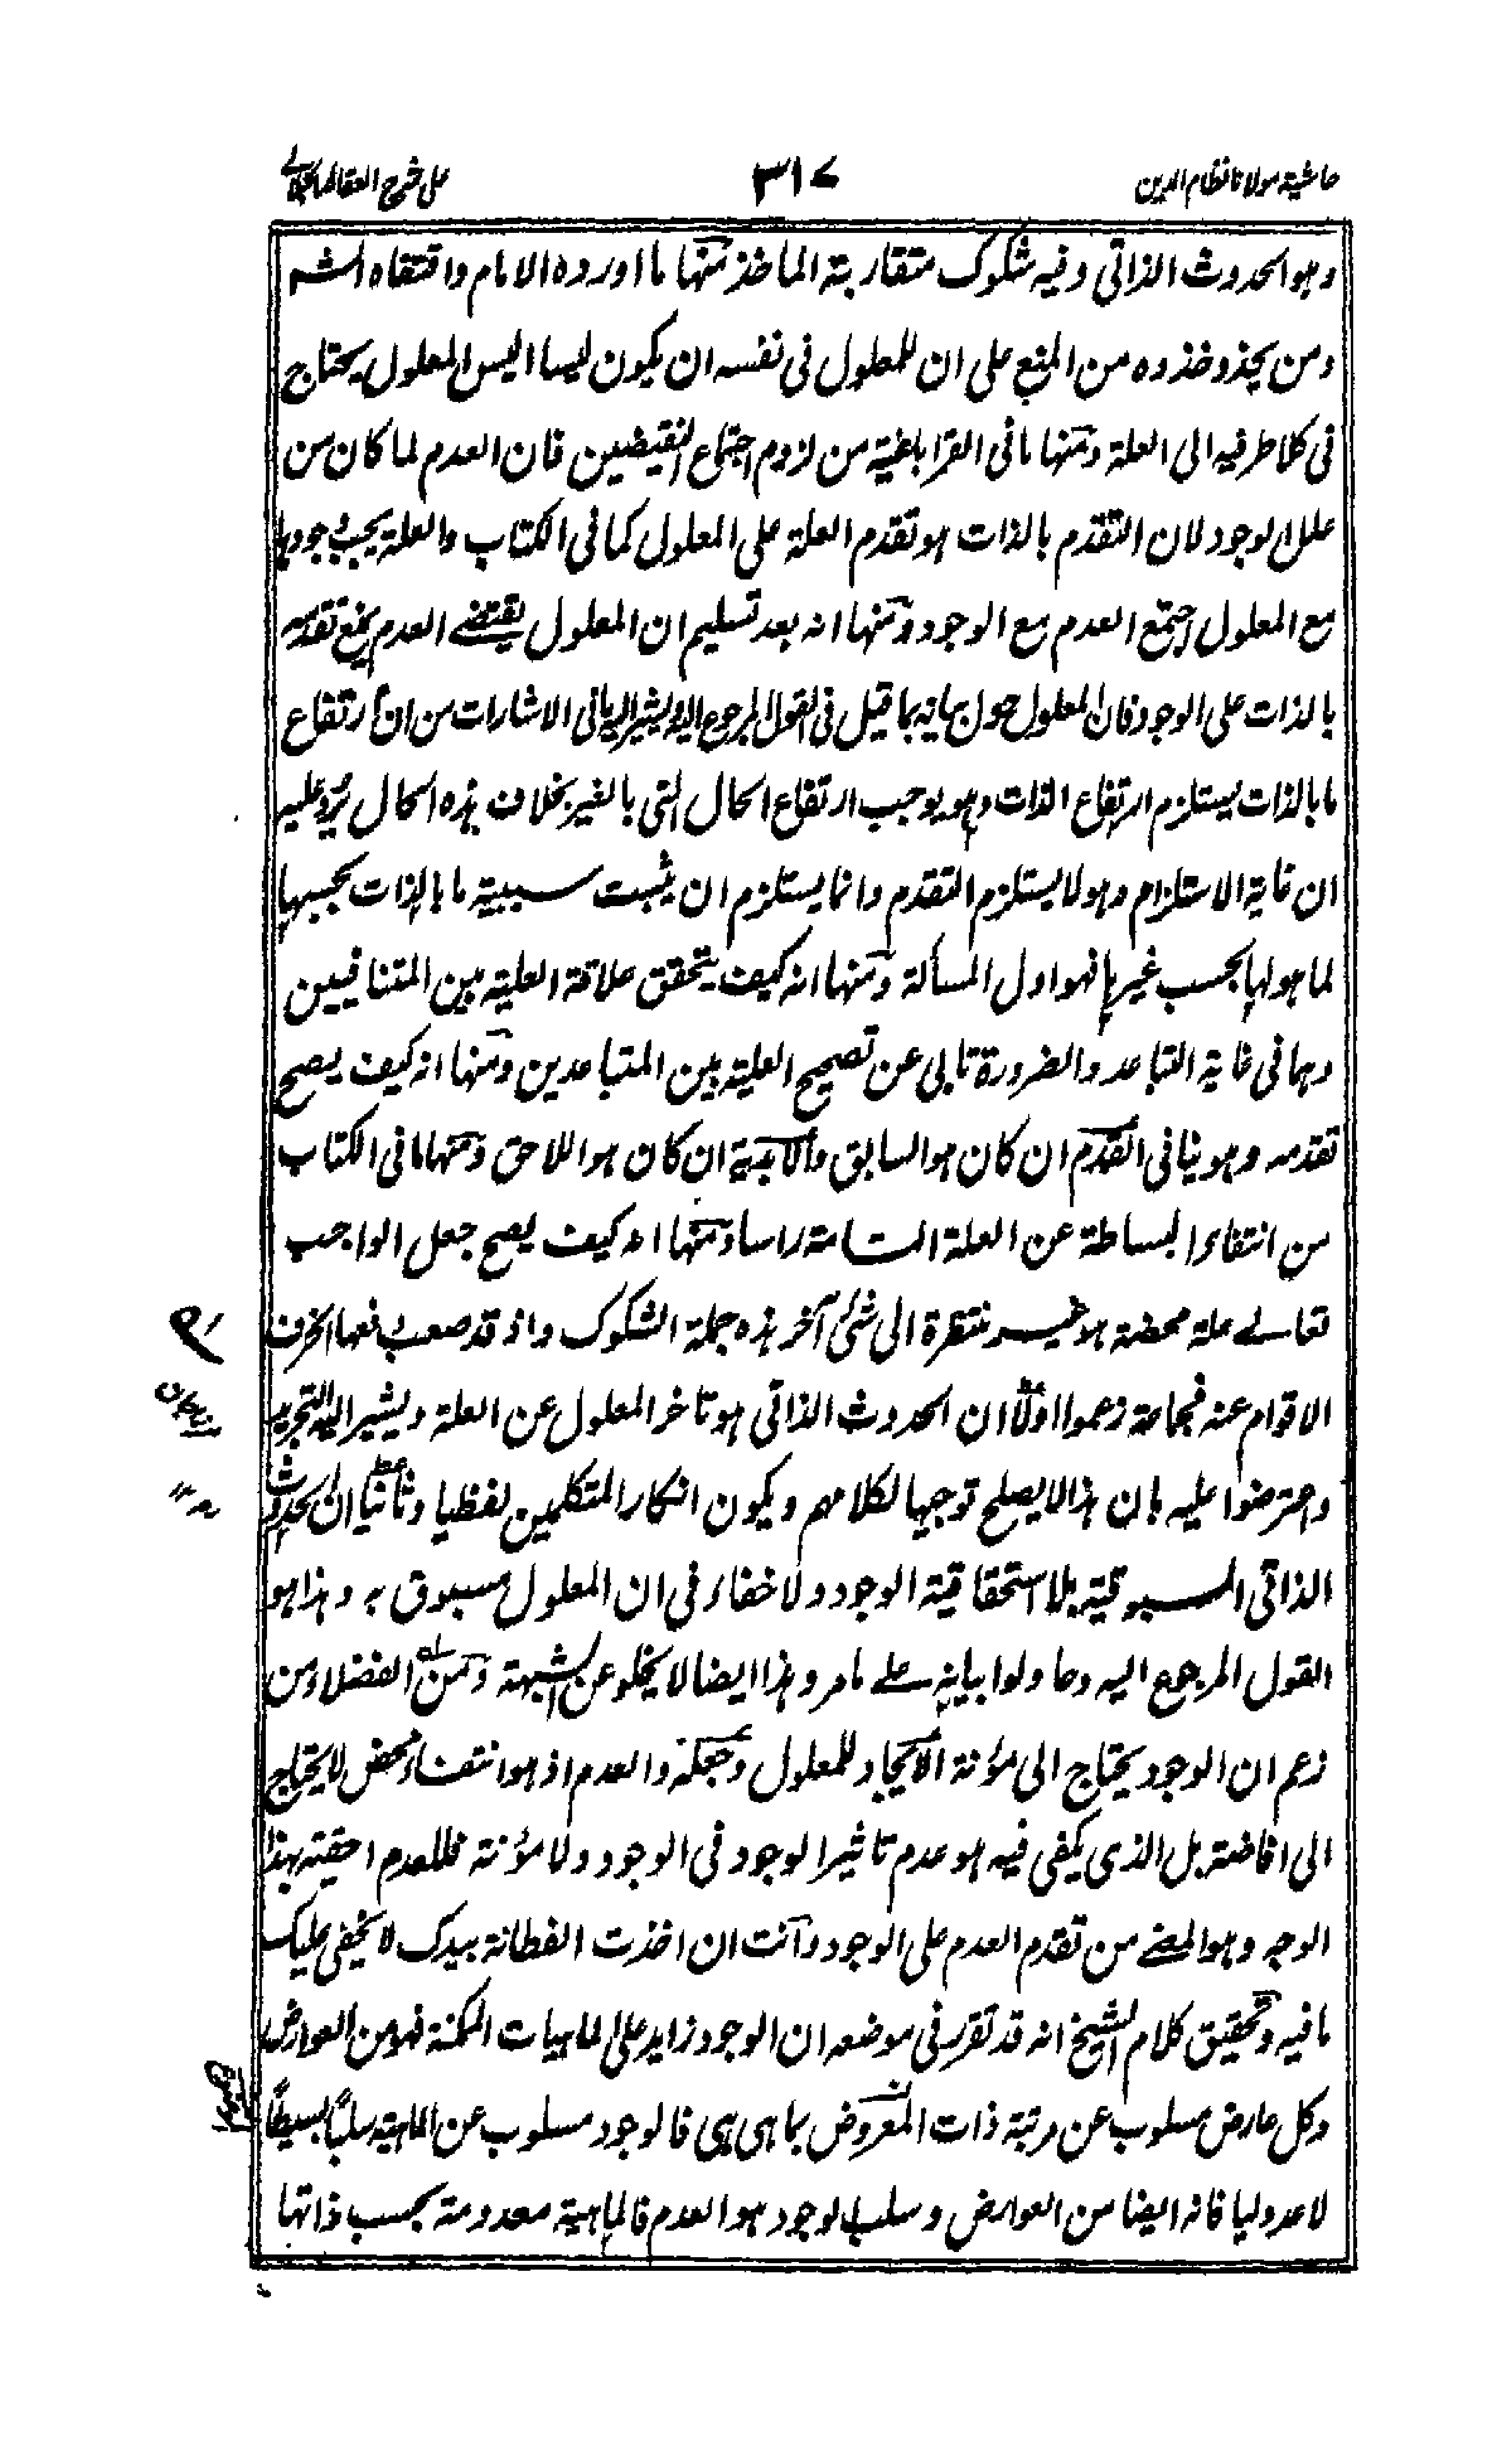 حاشية مولانا نظام الدين
٣١٧
على شرح العقائد
وهو الحدوث الذاتي وفيه شكوك متقاربة الماخذ منها ما اورده الامام واقتفاه الشه
ومن يحذو حذوه من المنع على ان للمعلول في نفسه ان يكون ليسا اليس المعلول يحتاج
في كلا طرفيه الى العلة ومنها ما في القراباغية من لزوم اجتماع النقيضين فان العدم لما كان من
علل الوجود لان التقدم بالذات هو تقدم العلة على المعلول كما في الكتاب والعلة يجب وجودها
مع المعلول اجتمع العدم مع الوجود ومنها انه بعد تسليم ان المعلول يقتضي العدم يمنع تقدمه
بالذات على الوجود فان المعلول حول بيانه بما قيل في القول المرجوع اليه ويشير اليه ما في الاشارات من ان ارتفاع
ما بالذات يستلزم ارتفاع الذات وهو يوجب ارتفاع الحال التي بالغير بخلاف هذه الحال يرد عليه
ان غاية الاستلزام وهو لا يستلزم التقدم وانما يستلزم ان يثبت سببية ما بالذات بحسبها
لما هو لها بحسب غيرها فهو اول المسألة ومنها انه كيف يتحقق علاقة العلية بين المتنافيين
وهما في غاية التباعد والضرورة تابى عن تصحيح العلية بين المتباعدين ومنها انه كيف يصح
تقدمه وهو ينافي القدم ان كان هو السابق والابدية ان كان هو اللاحق ومنها ما في الكتاب
من انتفاء البساطة عن العلة التامة راسا ومنها انه كيف يصح جعل الواجب
تعالى علة محضة هو غير منتظرة الى شئ آخر هذه جملة الشكوك واذ قد صعب دفعها انحرف
الاقوام عنه فجماعة زعموا اولا ان الحدوث الذاتي هو تاخر المعلول عن العلة ويشير اليه التجريد
واعترضوا عليه بان هذا لا يصلح توجيها لكلامهم ويكون انكار المتكلمين لفظيا وثانيا ان الحدوث
الذاتي المسبوقية بلا استحقاقية الوجود ولا خفاء في ان المعلول مسبوق به وهذا هو
القول المرجوع اليه وحاولوا بيانه على ما مر وهذا ايضا لا يخلو عن الشبهة ومن الفضلاء من
زعم ان الوجود يحتاج الى مؤنة الايجاد للمعلول وجعله والعدم اذ هو انتفاء محض لا يحتاج
الى افاضته بل الذي يكفي فيه هو عدم تاثير الوجود في الوجود ولا مؤنة فللعدم احقية بهذا
الوجه وهو المعنى من تقدم العدم على الوجود وانت ان اخذت الفطانة بيدك لا يخفى عليك
ما فيه وتحقيق كلام الشيخ انه قد تقرر في موضعه ان الوجود زايد على الماهيات الممكنة فهو من العوارض
وكل عارض مسلوب عن مرتبة ذات المعروض بما هي هي فالوجود مسلوب عن الماهية سلبا بسيطا
لا عدوليا فانه ايضا من العوارض وسلب الوجود هو العدم فالماهية معدومة بحسب ذاتها